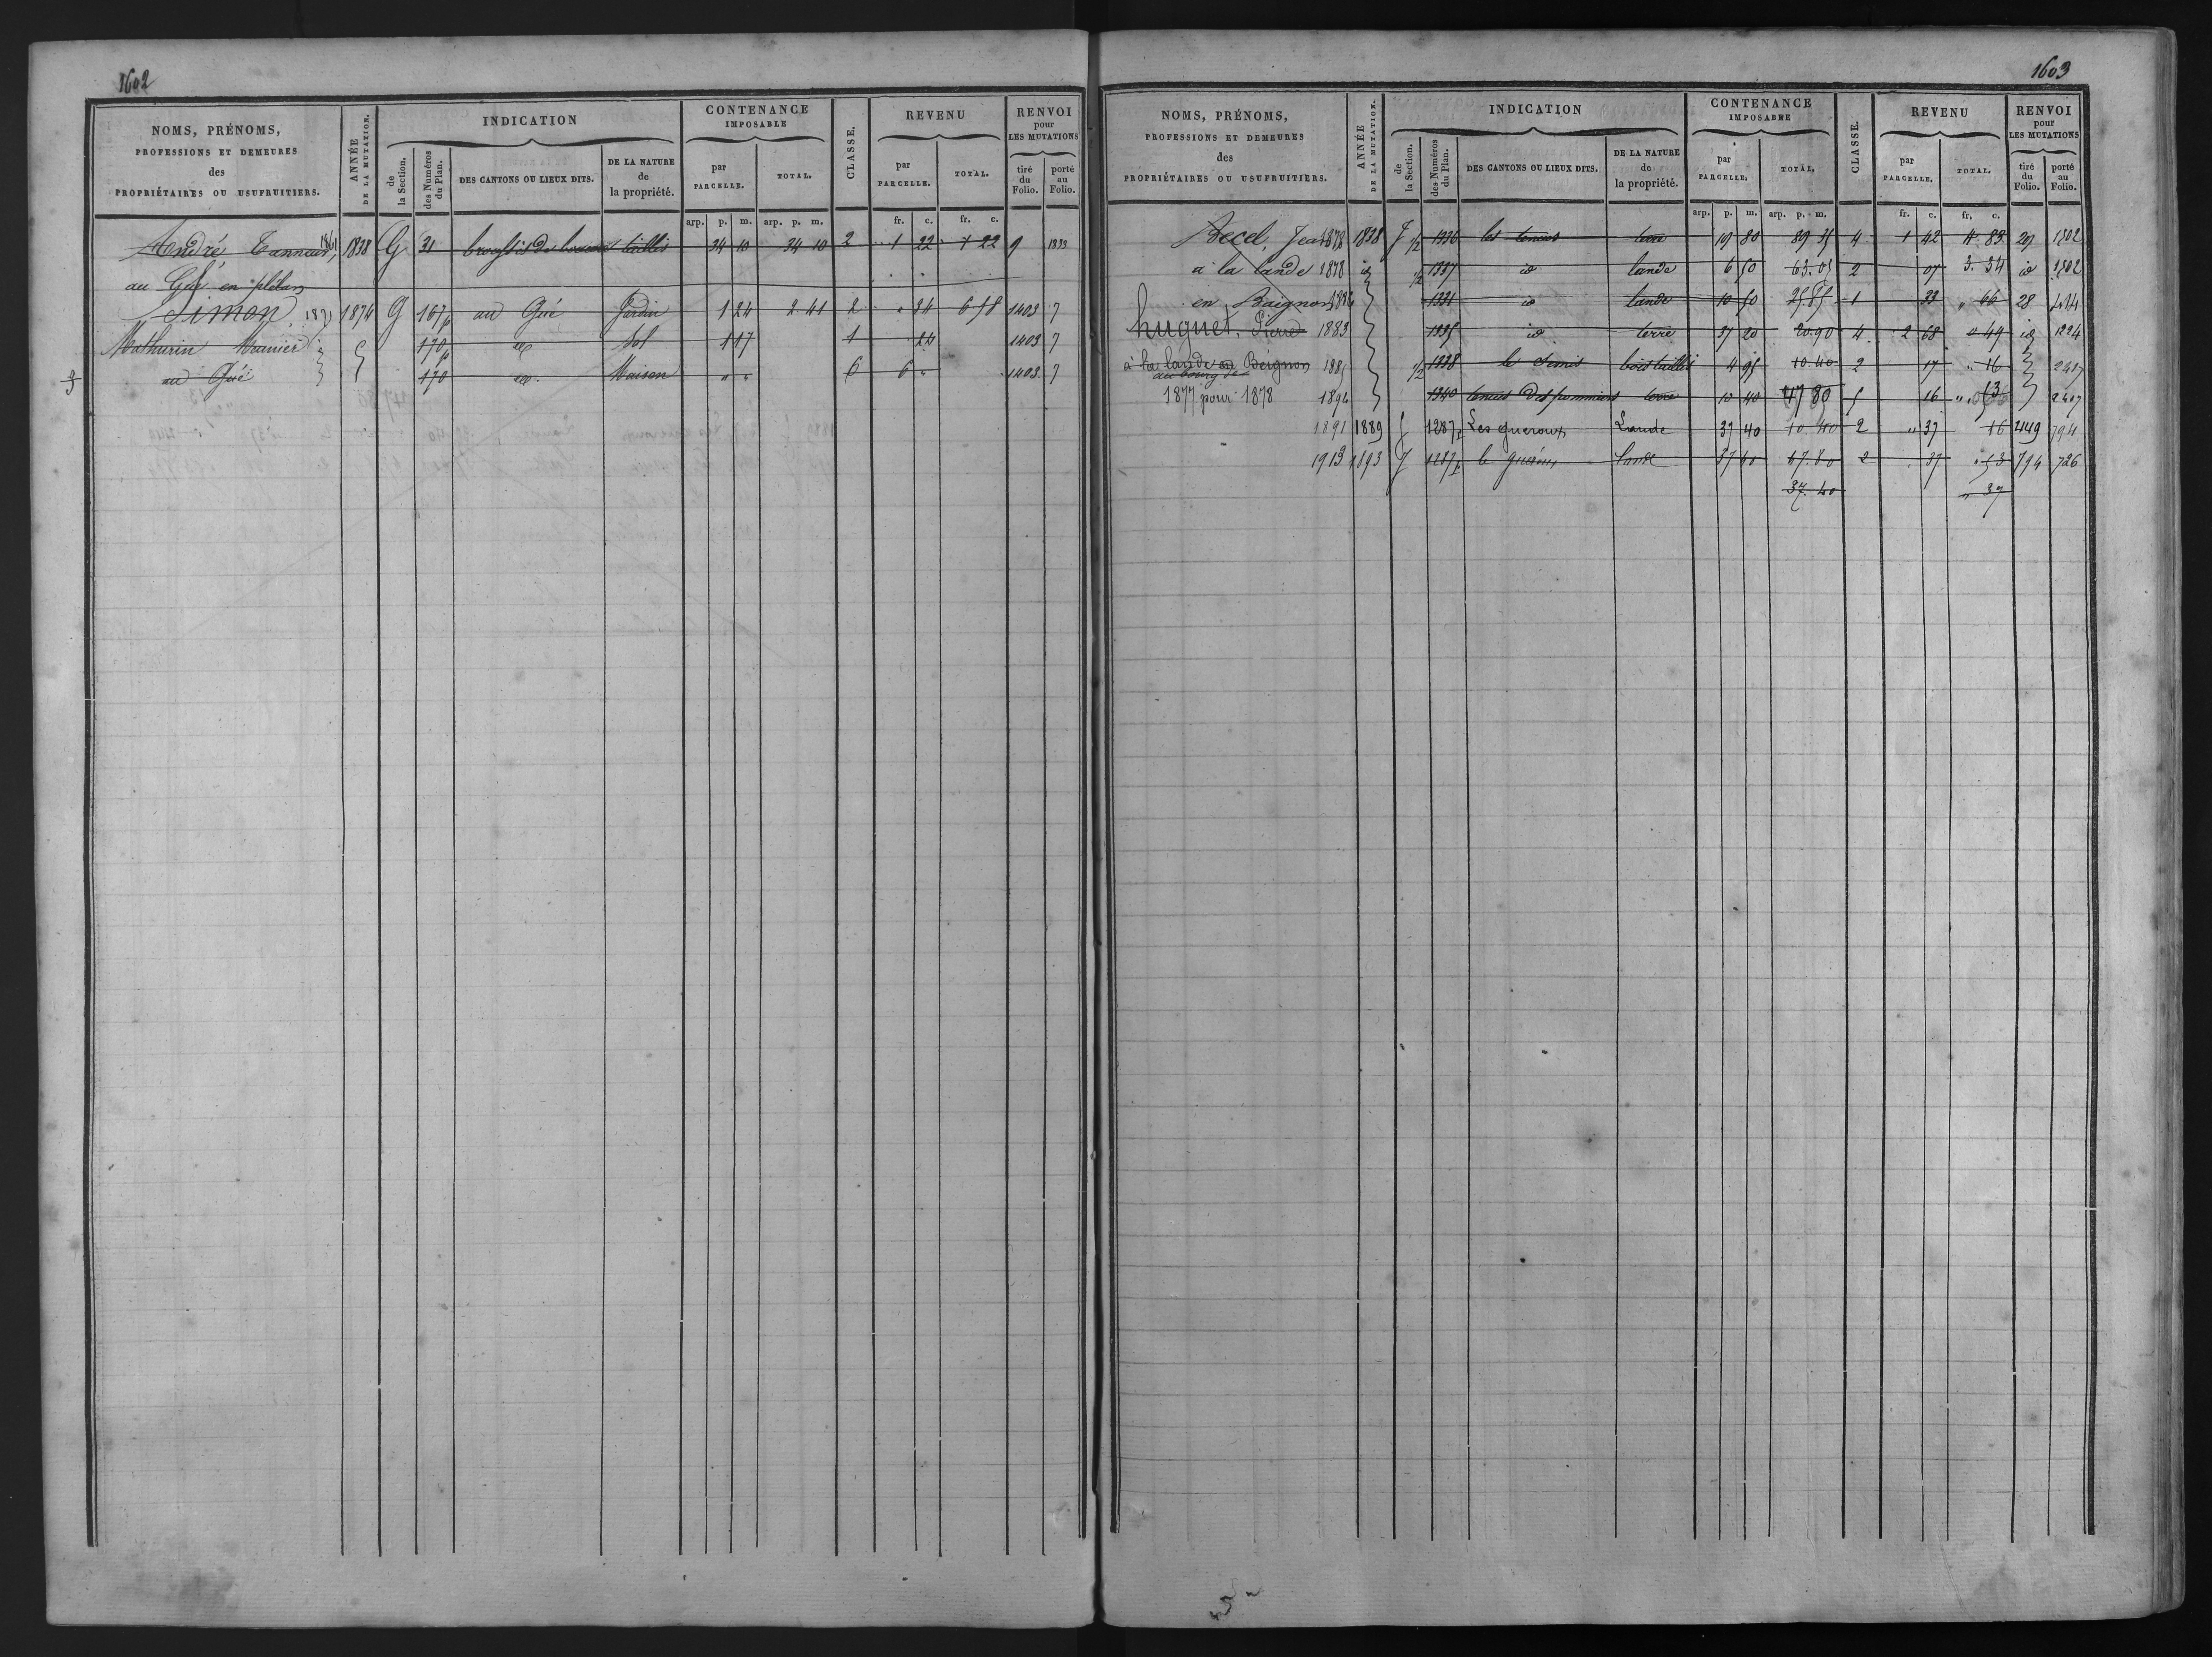 1602
NOMS, PRÉNOMS, PROFESSIONS ET DEMEURES des PROPRIÉTAIRES OU USUFRUITIERS.
ANNÉE DE LA MUTATION.
INDICATION
de la Section.
des Numéros du Plan.
DES CANTONS OU LIEUX DITS.
DE LA NATURE de la propriété.
CONTENANCE IMPOSABLE
par PARCELLE.
TOTAL.
CLASSE.
REVENU
par PARCELLE.
TOTAL.
RENVOI pour LES MUTATIONS
tiré du Folio.
porté au Folio.
arp. p. m. arp. p. m. fr. c. fr. c.
André, Tanneur, 1861 1838 G 31 taillis 34 10 34 10 2 1 22 1 22 9
au Gué en plélan
Simon, 1871 1874 G 167p au Gué Jardin 1 24 2 41 2 " 24 6 48 1403 7
Mathurin Meunier 170p Sol 1 17 1 24 1403 7
au Gué 170 Maison " " 6 6 " 1403 7
1603
NOMS, PRÉNOMS, PROFESSIONS ET DEMEURES des PROPRIÉTAIRES OU USUFRUITIERS.
ANNÉE DE LA MUTATION.
INDICATION
de la Section.
des Numéros du Plan.
DES CANTONS OU LIEUX DITS.
DE LA NATURE de la propriété.
CONTENANCE IMPOSABLE
par PARCELLE.
TOTAL.
CLASSE.
REVENU
par PARCELLE.
TOTAL.
RENVOI pour LES MUTATIONS
tiré du Folio.
porté au Folio.
arp. p. m. arp. p. m. fr. c. fr. c.
Becel, Jean 1878 1838 J 1/2 1336 les tenues terre 19 80 89 35 4 1 42 4.83 29 1502
à la lande 1878 id 1/2 1337 id lande 6 50 63.05 2 07 3.34 id 1502
en Baignon 1331 id lande 10 50 25.85 1 33 " 66 28
huguet, Pierre 1883 1335 id terre 37 20 20.90 4 2 68 " 49 id 1224
à la lande en Beignon 1885 1/2 1338 bois taillis 4 95 10.40 2 17 " 16 2417
au bourg de
1877 pour 1878 1894 1340 tenues des pommiers terre 10 40 47 80 5 16 " 53 2417
1891 1889 J 1287p Les gueroux Lande 37 40 10.40 2 " 37 16 449 794
1913 1893 J 1287p lande 37 40 47.80 2 37 " 53 794 726
37.40 " 37